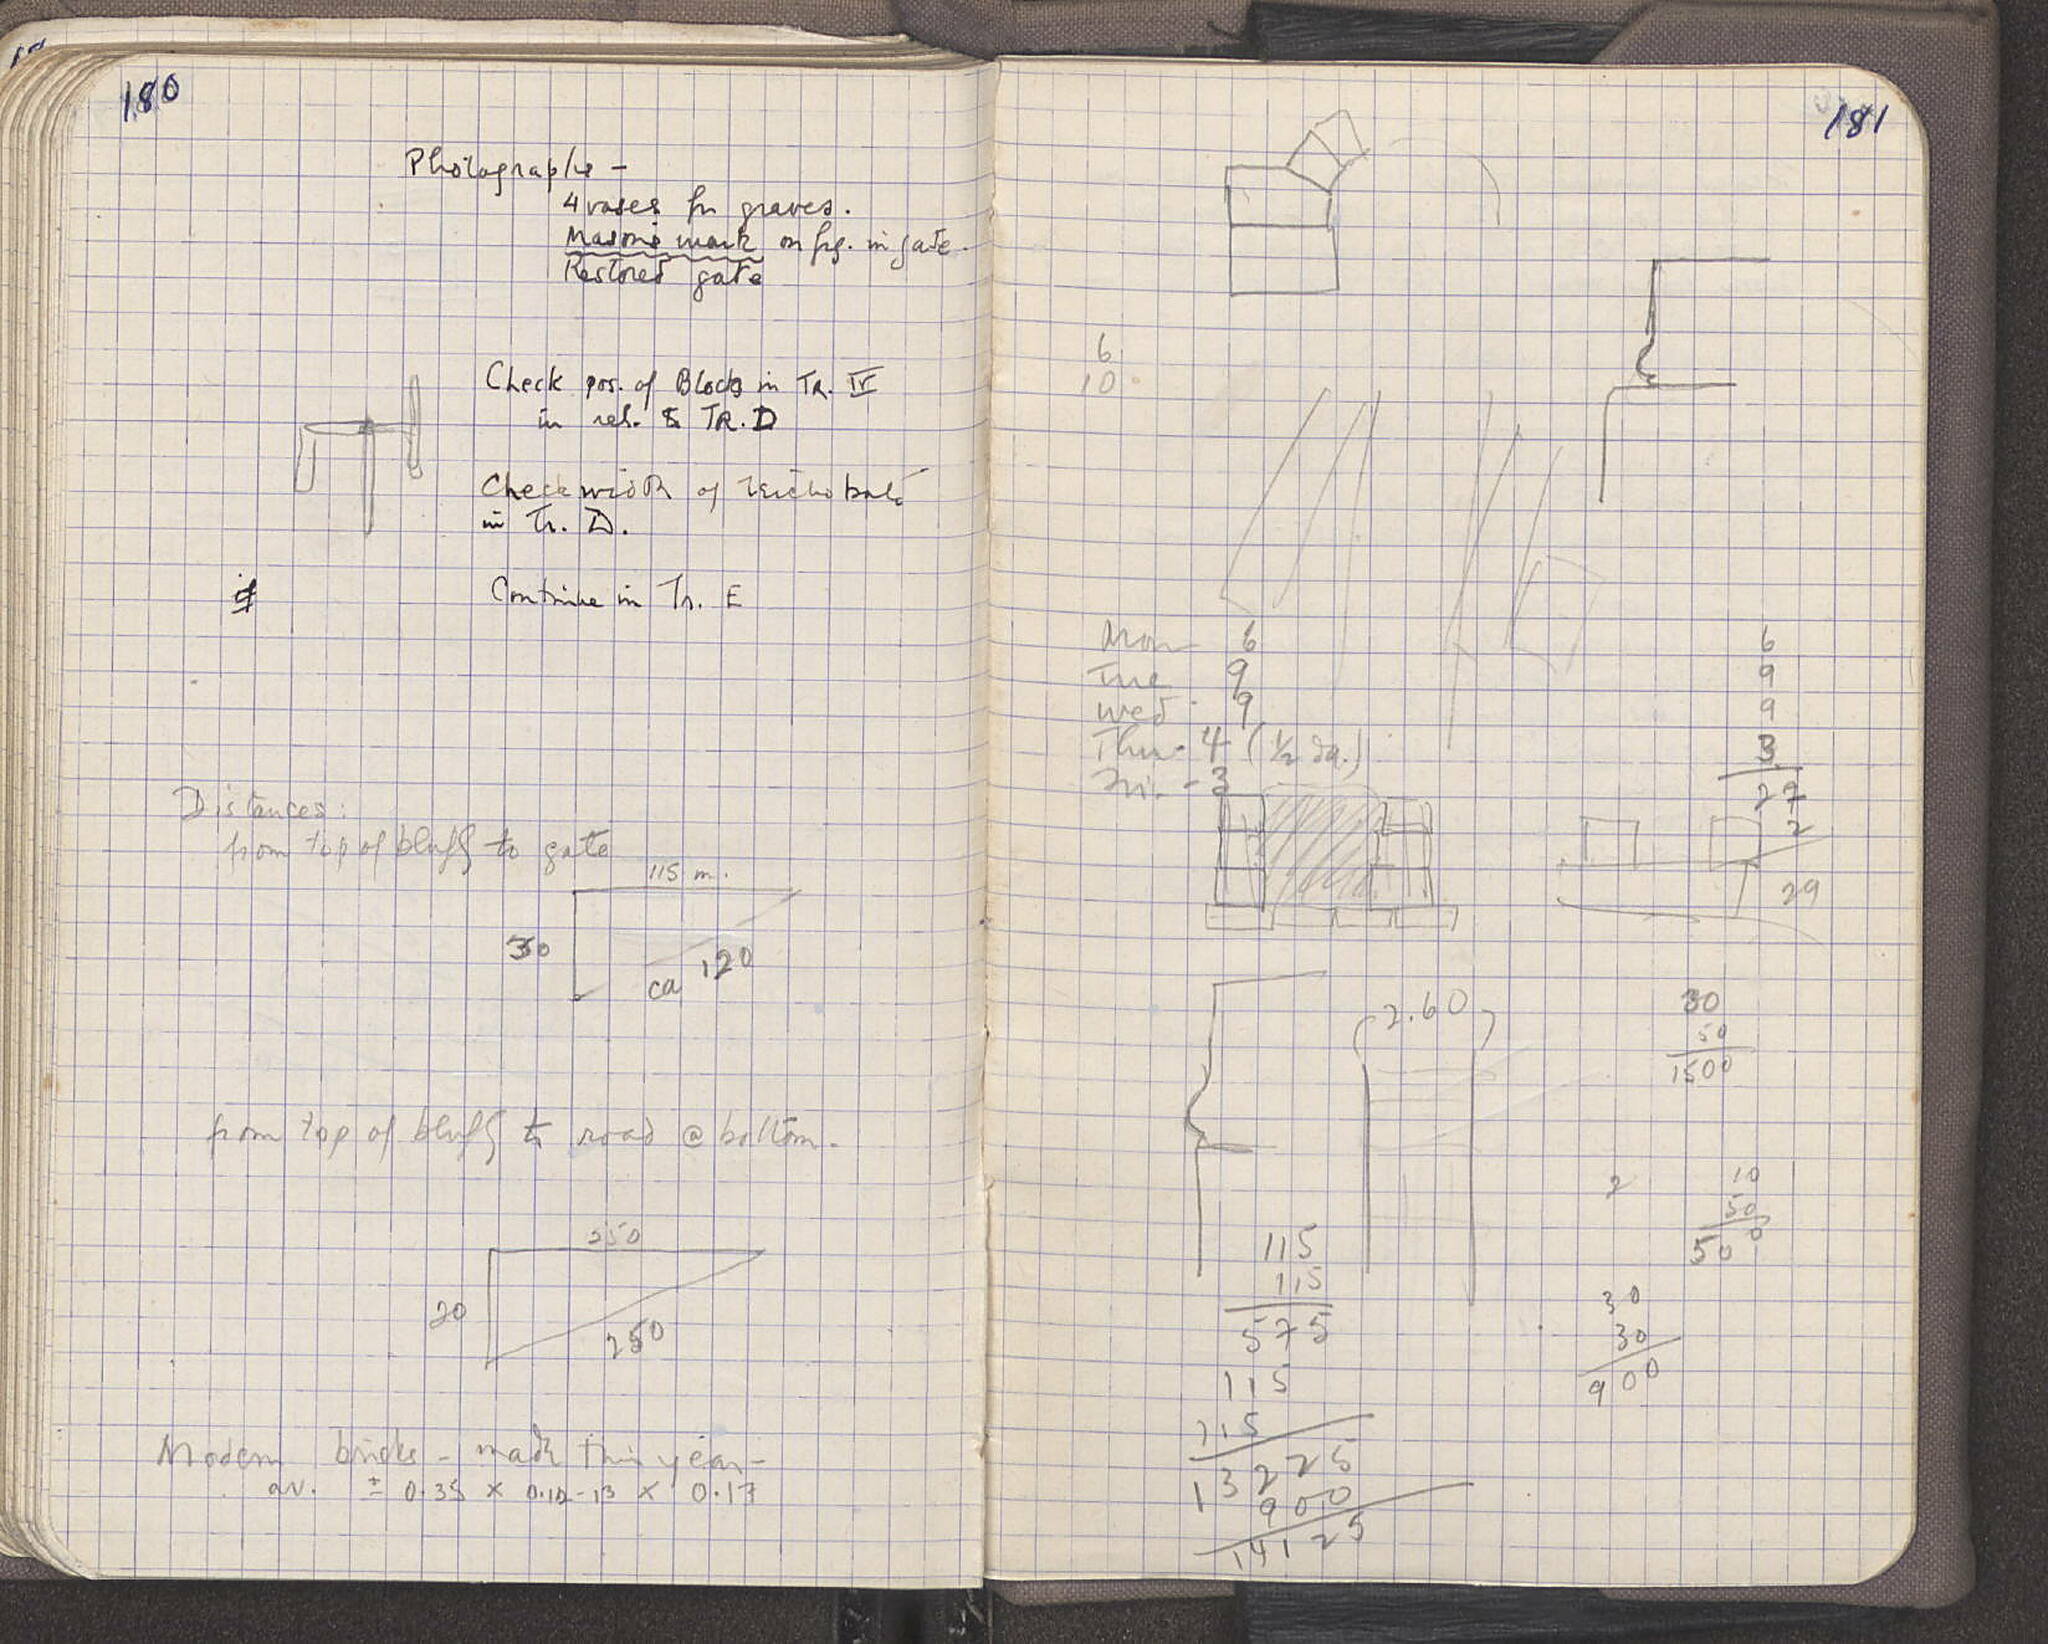 180
Photographs -
4 vases fr graves.
Mason's mark on frg. in gate.
Restored gate
Check pos. of Blocks in TR. IV
in rel. to TR. D
Check width of
in Tr. D.
Continue in Tr. E
Distances:
from top of bluff to gate
115 m.
30
ca 120
from top of bluff to road @ bottom.
250
20
250
Modern bricks - made this year -
av. ± 0.35 x 0.12-13 x 0.17
181
6
10
Mon - 6
Tue 9
Wed - 9
Thu - 4 (1/2 da.)
Fri. - 3
6
9
9
3
27
2
29
2.60
30
50
1500
2
10
50
500
115
115
575
115
115
13225
900
14125
30
30
900